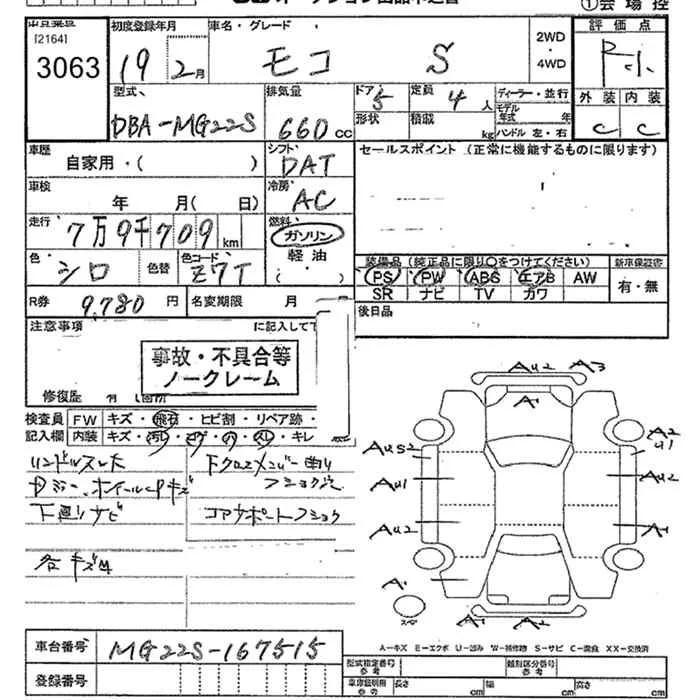 ①会場控
[2164]
3063
初度登録年月
19 2月
車名・グレード
モコ S
2WD
・
4WD
評価点
R小
外装 内装
C C
型式
DBA-MG22S
排気量
660 CC
ドア 5
形状
定員 4 人
積載 kg
ディーラー・並行
モデル年式 年
ハンドル 左・右
車歴
自家用・( )
シフト
DAT
セールスポイント (正常に機能するものに限ります)
車検
年 月( 日)
冷房
AC
走行
7万9千709 km
燃料
ガソリン
軽油
( ・ )
色
シロ
色替
色コード
Z7T
装備品 (純正品に限り○をつけてください)
PS PW ABS エアB AW
SR ナビ TV カワ
新車保証書
有・無
R券 9,780 円
名変期限 月
後日品
注意事項
に記入して下
事故・不具合等
ノークレーム
修復歴
検査員 FW キズ・飛石・ヒビ割・リペア跡・
記入欄 内装 キズ・汚レ・コゲ・穴・スレ・キレ
ハンドルスレ大
下廻りサビ
コアサポートフショク
各キズ凹
AU2 A3
A1
AUS2
AU1
AU2
A2
U1
AU2
A1
A1
スペア
A1 A2
A-キズ E-エクボ U-凹み W-補修跡 S-サビ C-腐食 XX-交換済
車台番号 MG22S-167515
登録番号
型式指定番号
参考
類別区分番号
参考
車庫証明用
参考
長さ cm
幅 cm
高さ cm